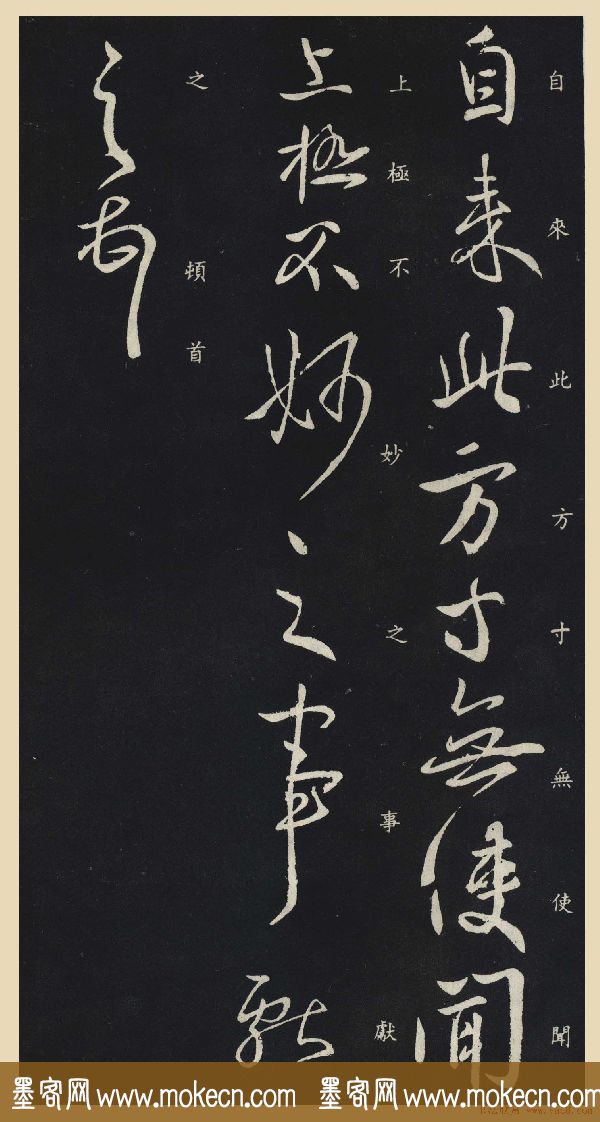 自來此方寸無使聞
自來此方寸無使聞
上極不妙之事獻
上極不妙之事獻
之頓首
之頓首
墨客网 www.mokecn.com 墨客网 www.mokecn.com